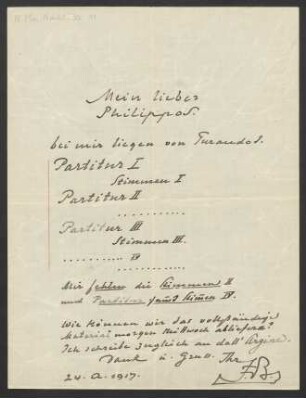 Mein lieber
Philippos.
bei mir liegen von Turandot.
Partitur I
Stimmen I
Partitur II
..........
Partitur III
Stimmen III.
.......... IV
..........
Mir fehlen die Stimmen II
und Partitur samt Stimen IV.
Wie können wir das vollständige
Material morgen Mittwoch abliefern?
Ich schreibe zugleich an dall' Argine.
Dank u. Gruss. Ihr
FB.
24. A. 1917.